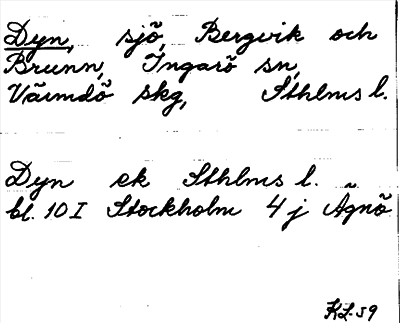 Dyn, sjö, Bergvik och
Brunn, Ingarö sn,
Värmdö skg, Sthlms l.
Dyn ek Sthlms l.
bl. 10 I Stockholm 4 j Ägnö
KL. 59